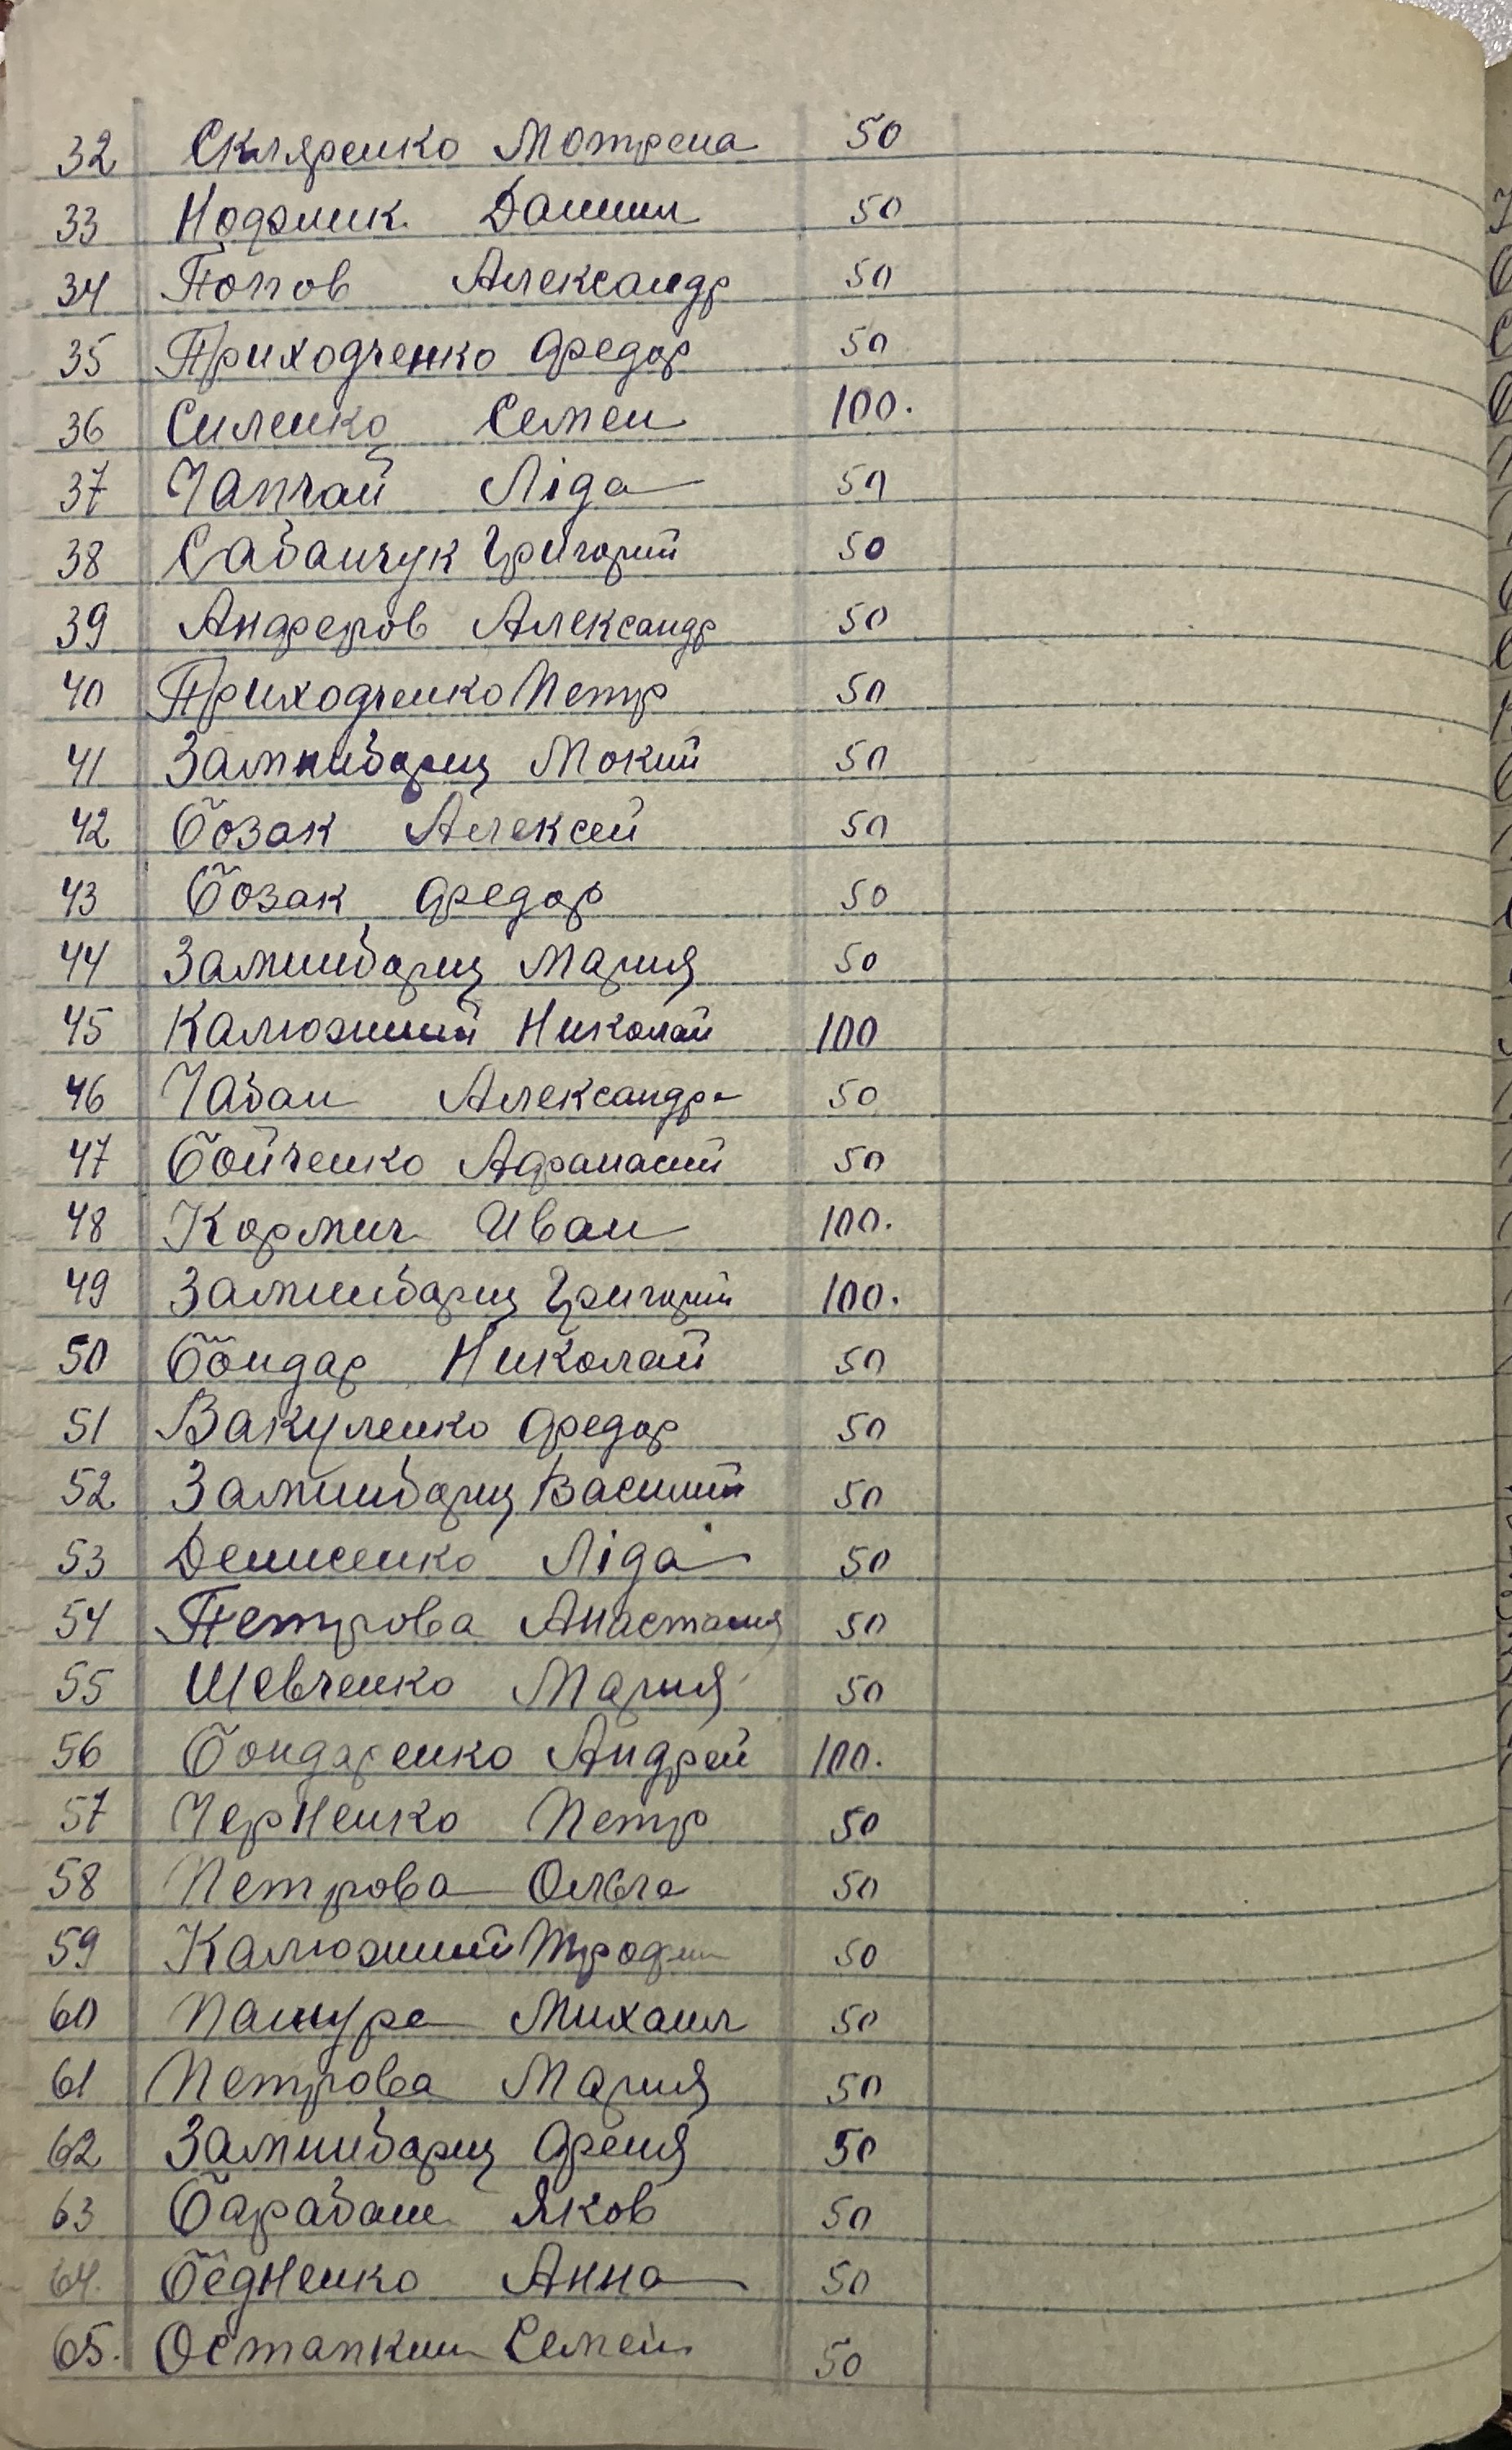 32 Скляренко Мотрена 50
33 Даниил 50
34 Попов Александр 50
35 Приходченко Федор 50
36 Силенко Семен 100.
37 Чапчай Ліда 50
38 Сабанчук Григорий 50
39 Анферов Александр 50
40 Приходченко Петр 50
41 Замниборщ Мокий 50
42 Бозак Алексей 50
43 Бозак Федор 50
44 Замниборщ Мария 50
45 Калюжний Николай 100
46 Чабан Александра 50
47 Бойченко Афанасий 50
48 Кормич Иван 100.
49 Замниборщ Григорий 100.
50 Бондар Николай 50
51 Вакуленко Федор 50
52 Замниборщ Василий 50
53 Денисенко Ліда 50
54 Петрова Анастасия 50
55 Шевченко Мария 50
56 Бондаренко Андрей 100.
57 Черненко Петр 50
58 Петрова Ольга 50
59 Калюжний Трофим 50
60 Михаил 50
61 Петрова Мария 50
62 Замниборщ Феня 50
63 Барабаш Яков 50
64. Бедненко Анна 50
65. Остапкин Семен 50